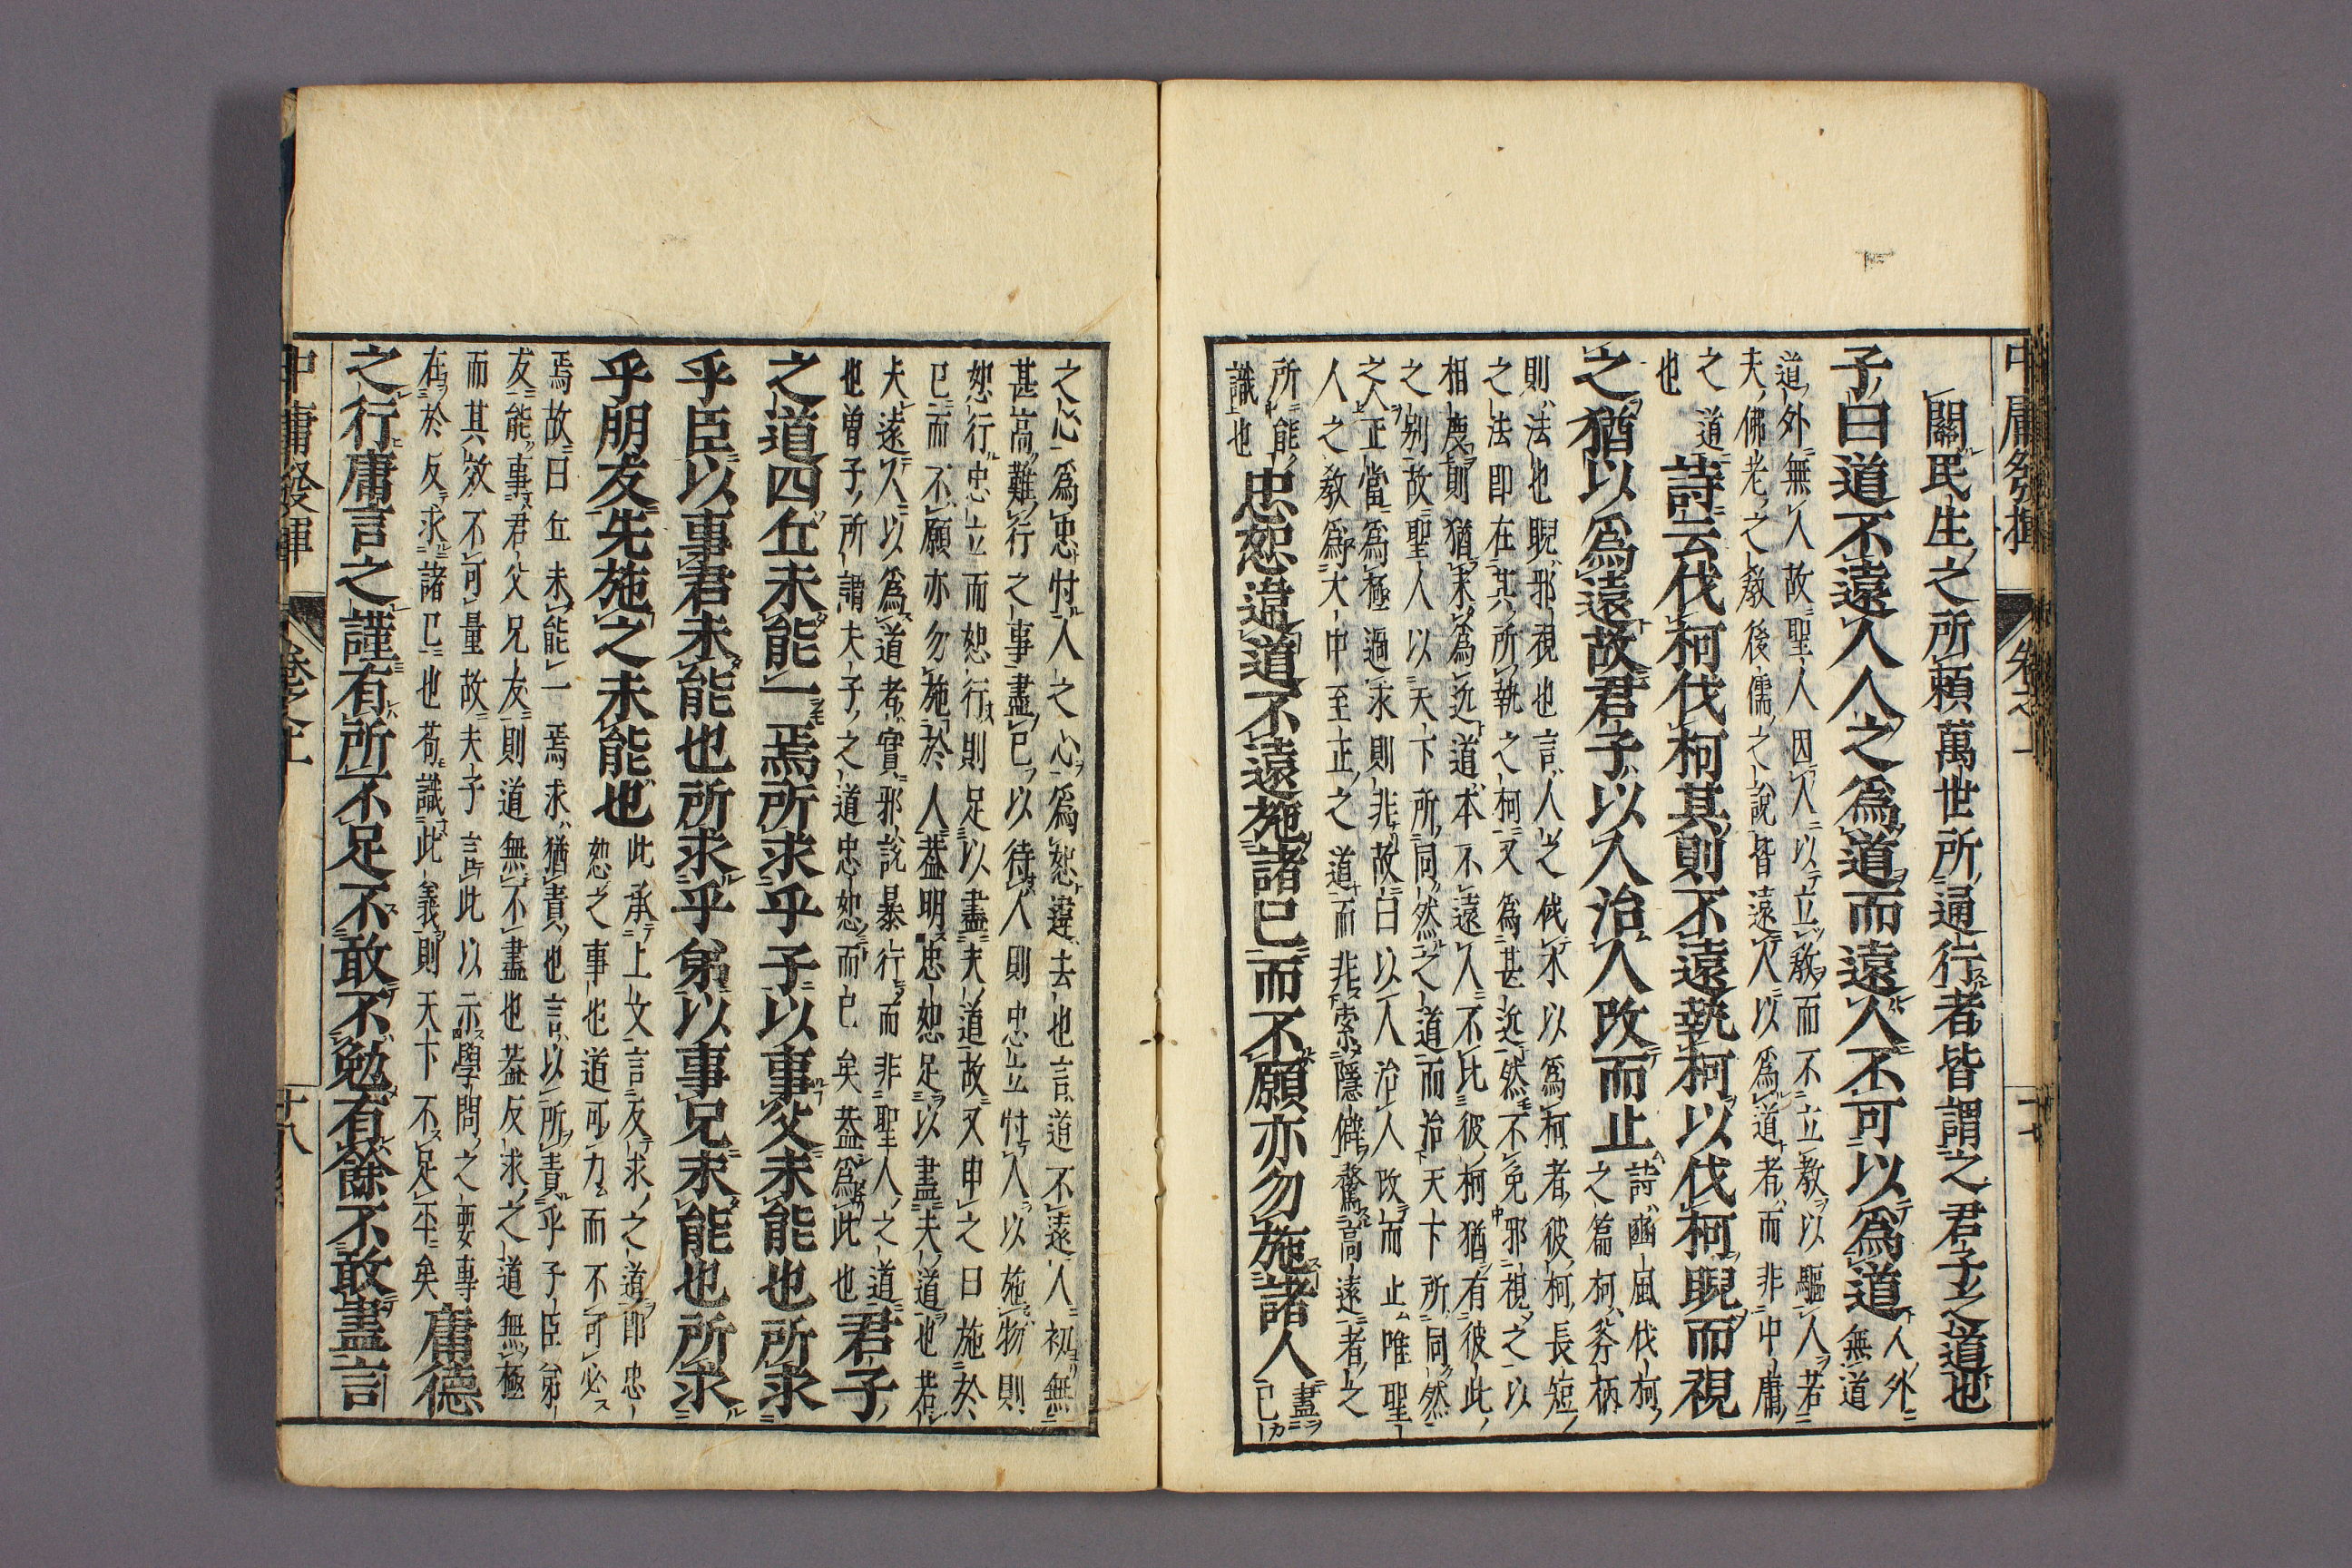 中庸發揮 卷之上 十七
關民生之所頼萬世所通行者皆謂之君子之道也
子曰道不遠人人之爲道而遠人不可以爲道人外無道
道外無人故聖人因人以立教而不立教以驅人若
夫佛老之教後儒之説皆遠人以爲道者而非中庸
之道也
詩云伐柯伐柯其則不遠執柯以伐柯睨而視
之猶以爲遠故君子以人治人改而止
詩豳風伐柯之篇柯斧柄
則法也睨邪視也言人之伐木以爲柯者彼柯長短
之法即在其所執之柯又爲甚近然不免邪視之以
相度則猶未爲近道本不遠人不比彼柯猶有彼此
之別故聖人以天下所同然之道而治天下所同然
之人正當爲極過求則非故曰以人治人改而止唯聖
人之教爲大中至正之道而非索隱僻騖高遠者之
所能識也
忠恕違道不遠施諸已而不願亦勿施諸人盡已
之心爲忠忖人之心爲恕違去也言道不遠人初無
甚高難行之事盡已以待人則忠立忖人以施物則
恕行忠立而恕行則足以盡夫道故又申之曰施於
已而不願亦勿施於人葢明忠恕足以盡夫道也若
夫遠人以爲道者實邪説暴行而非聖人之道
也曽子所謂夫子之道忠恕而已矣葢爲此也
君子
之道四丘未能一焉所求乎子以事父未能也所求
乎臣以事君未能也所求乎弟以事兄未能也所求
乎朋友先施之未能也
此承上文言反求之道即忠
恕之事也道可力而不可必
焉故曰丘未能一焉求猶責也言以所責乎子臣弟
友能事君父兄友則道無不盡也葢反求之道無極
而其效不可量故夫子言此以示學問之要專
在於反求諸已也苟識此義則天下不足平矣
庸德
之行庸言之謹有所不足不敢不勉有餘不敢盡言
中庸發揮 卷之上 十八